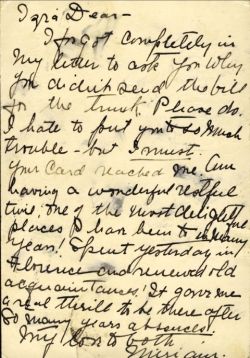 Dear -
I forgot completely in
my letter to ask you why
you didn't send the bill
for the trunk. Please do.
I hate to put you to so much
trouble - but I must.
Your card reached me. Am
having a wonderful restful
time. One of the most delightful
places I have been to in many
years! Spent yesterday in
Florence and renewed old
acquaintances. It gave me
a real thrill to be there after
so many years absence!
My love to both
Miriam.